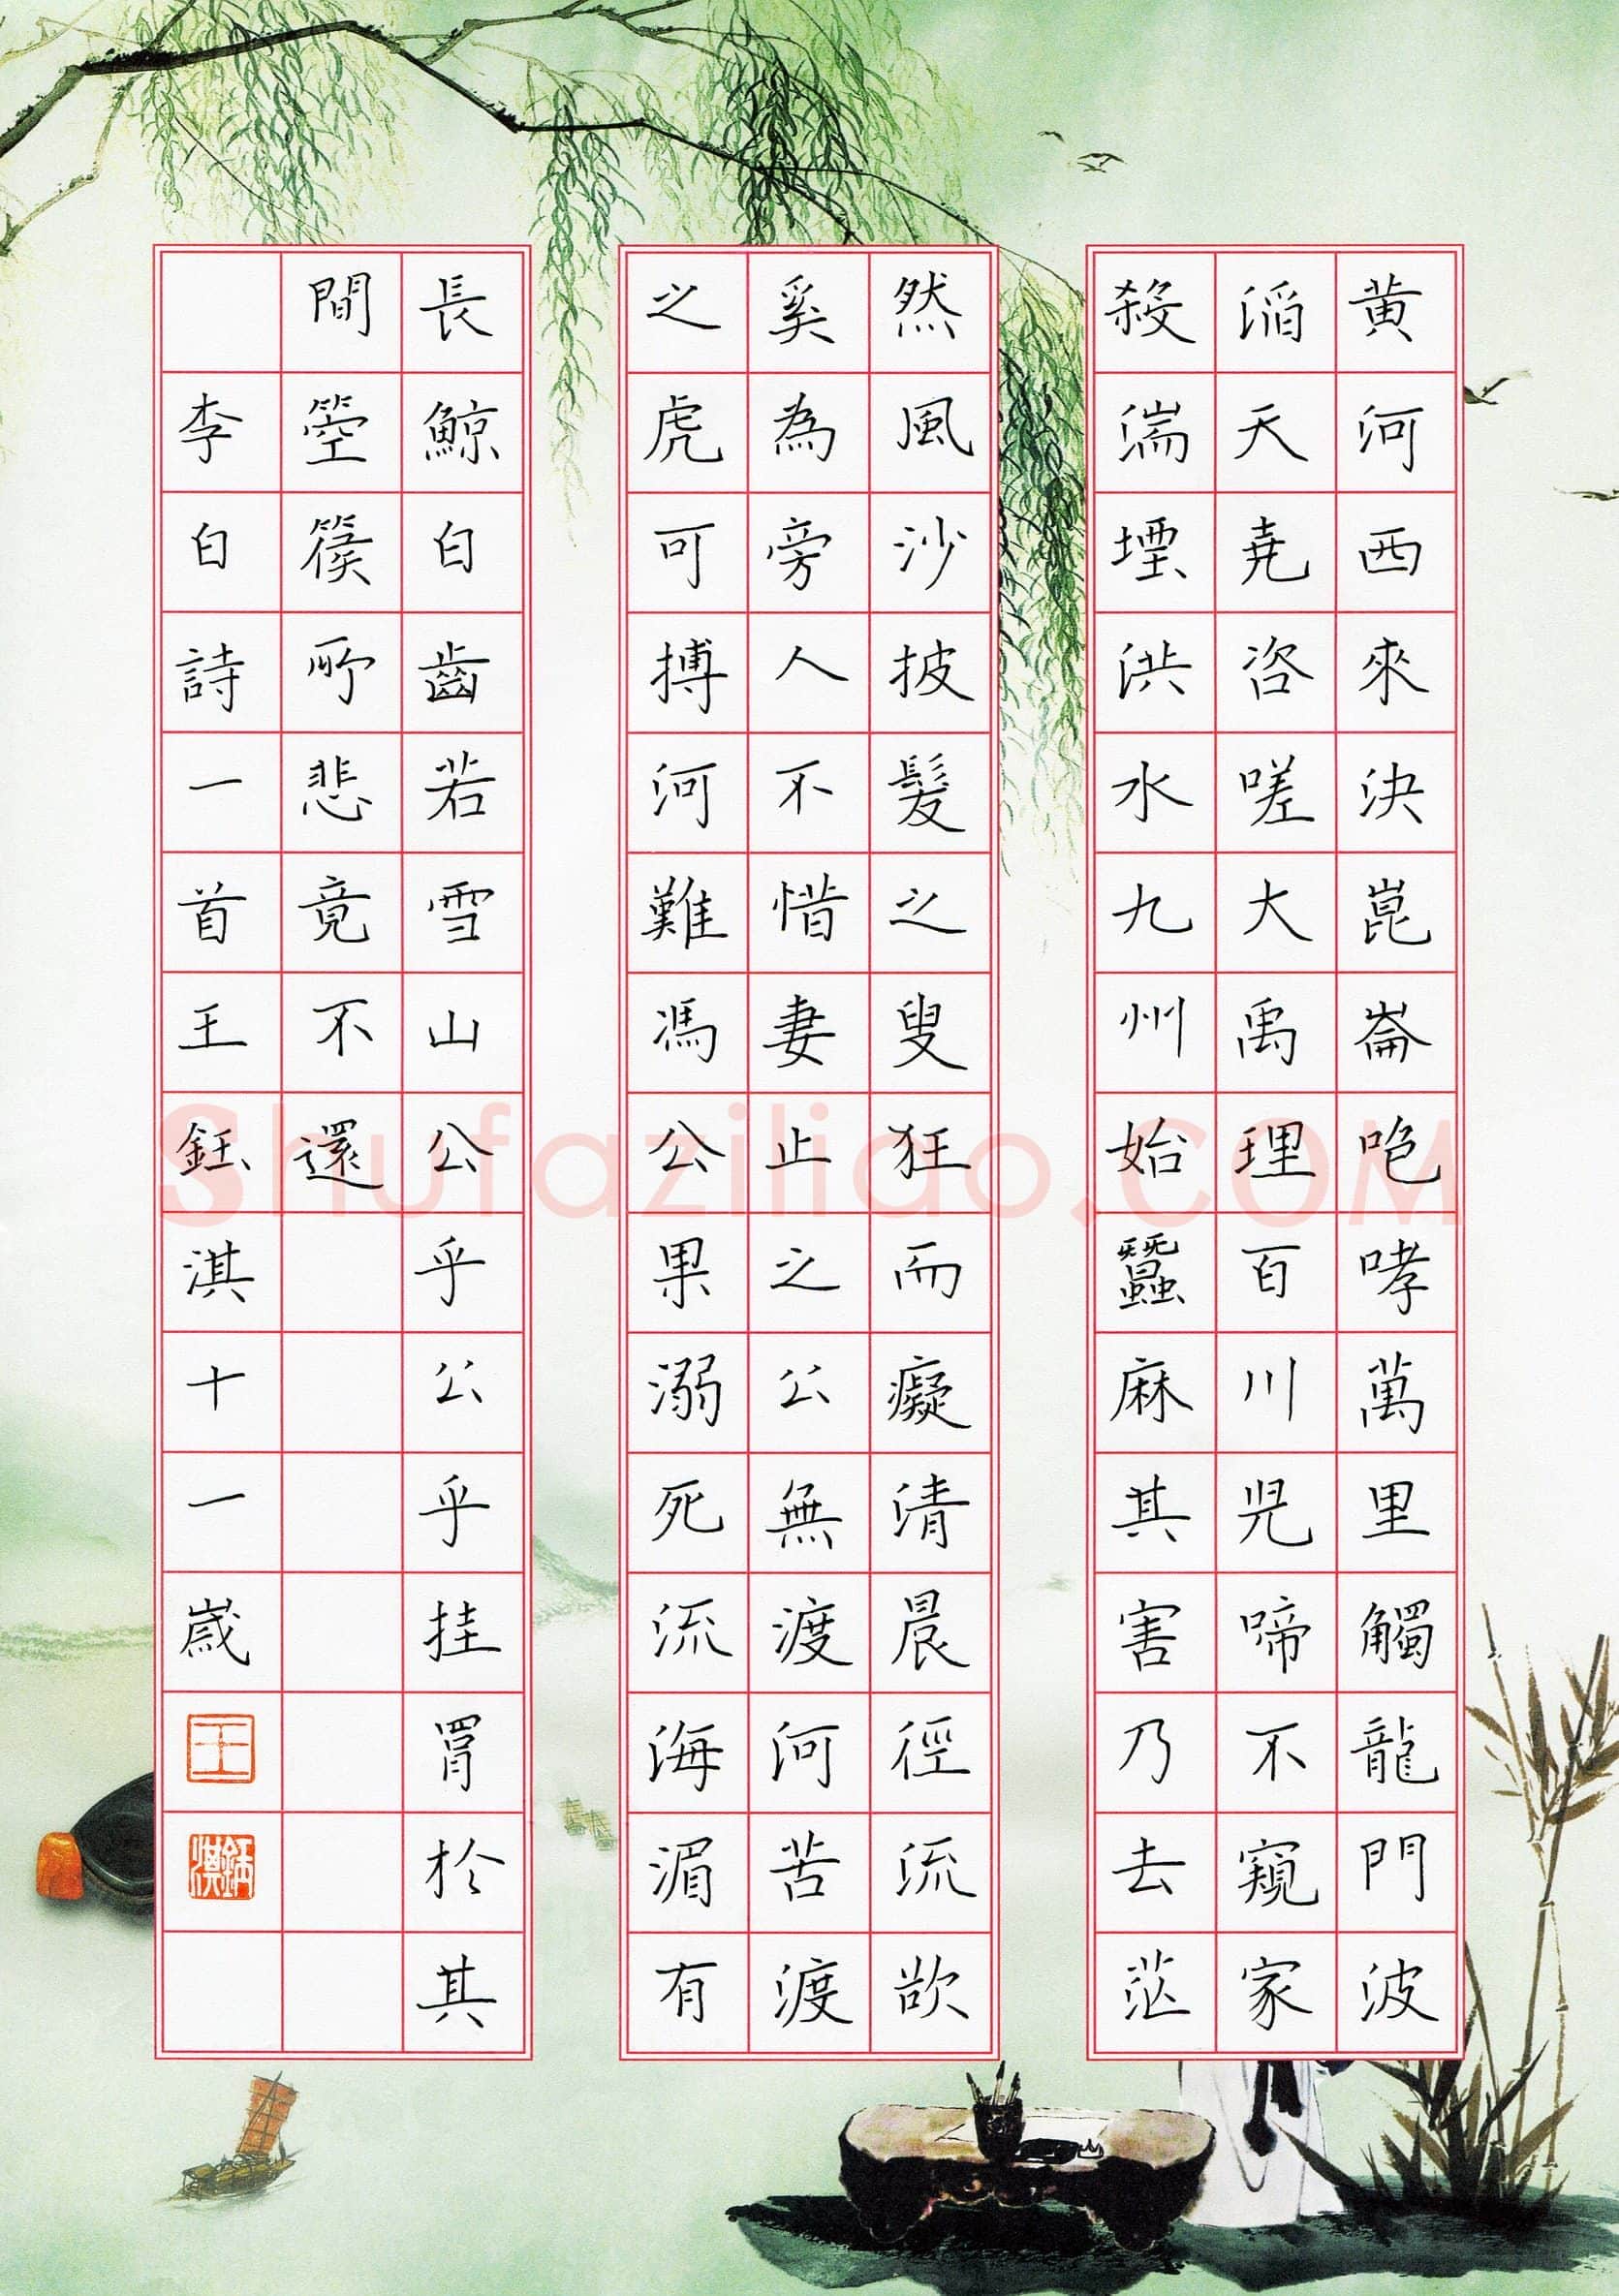 黄河西來決崑崙咆哮萬里觸龍門波
滔天堯咨嗟大禹理百川兒啼不窺家
殺湍堙洪水九州始蠶麻其害乃去茫
然風沙披髮之叟狂而癡清晨徑流欲
奚為旁人不惜妻止之公無渡河苦渡
之虎可搏河難馮公果溺死流海湄有
長鯨白齒若雪山公乎公乎挂罥於其
間箜篌所悲竟不還
李白詩一首王鈺淇十一歲
王
鈺淇
shufaziliao.COM